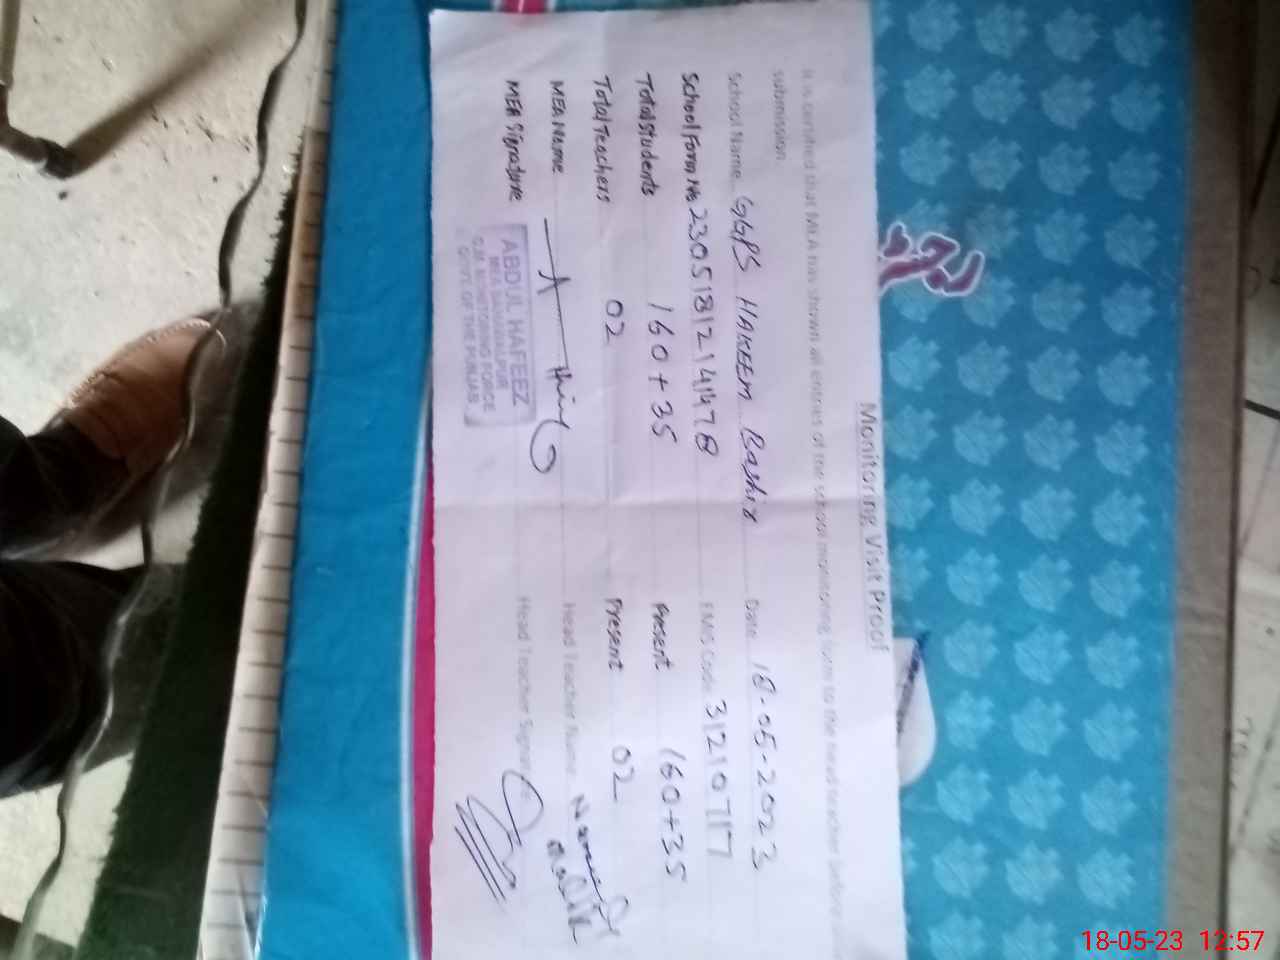 Monitoring Visit Proof
It is certified that MEA has shown all entries of the school monitoring form to the head teacher before
submission.
School Name GGPS HAKEEM Bashir Date: 18-05-2023
School Form No 23051812141478 EMIS Code 31210717
Total Students 160+35 Present 160+35
Total Teachers 02 Present 02
MEA Name Head Teacher Name
MEA Signature Head Teacher Signature
ABDUL HAFEEZ
MEA BAHAWALPUR
C.M. MONITORING FORCE
GOVT. OF THE PUNJAB
رجسٹر
18-05-23 12:57